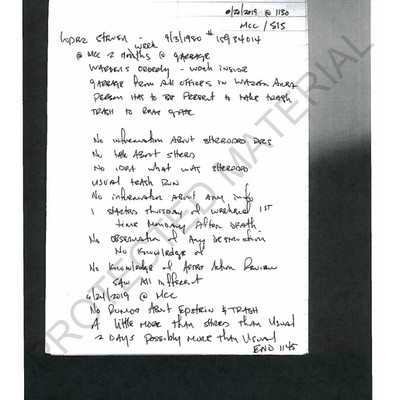 8/20/2019 @ 1130
MCC / SIS
Lopez Steven - 9/3/1980 # 15934014
week
@ MCC 2 months @ garbage
Wardens orderly - work inside
garbage from all offices in Warden area
person has to be present to take trash
trash to rear gate
No information about shredded docs
No talk about shreds
No idea what was shredded
usual trash run
No information about any info
I started Thursday of weekend 1st
time Monday after death.
No observation of any destruction
No knowledge of
No knowledge of After Action Review
Saw all different
/2019 @ MCC
No rumors about Epstein & trash
A little more than shreds than usual
2 days possibly more than usual
END 1145
PROTECTED MATERIAL